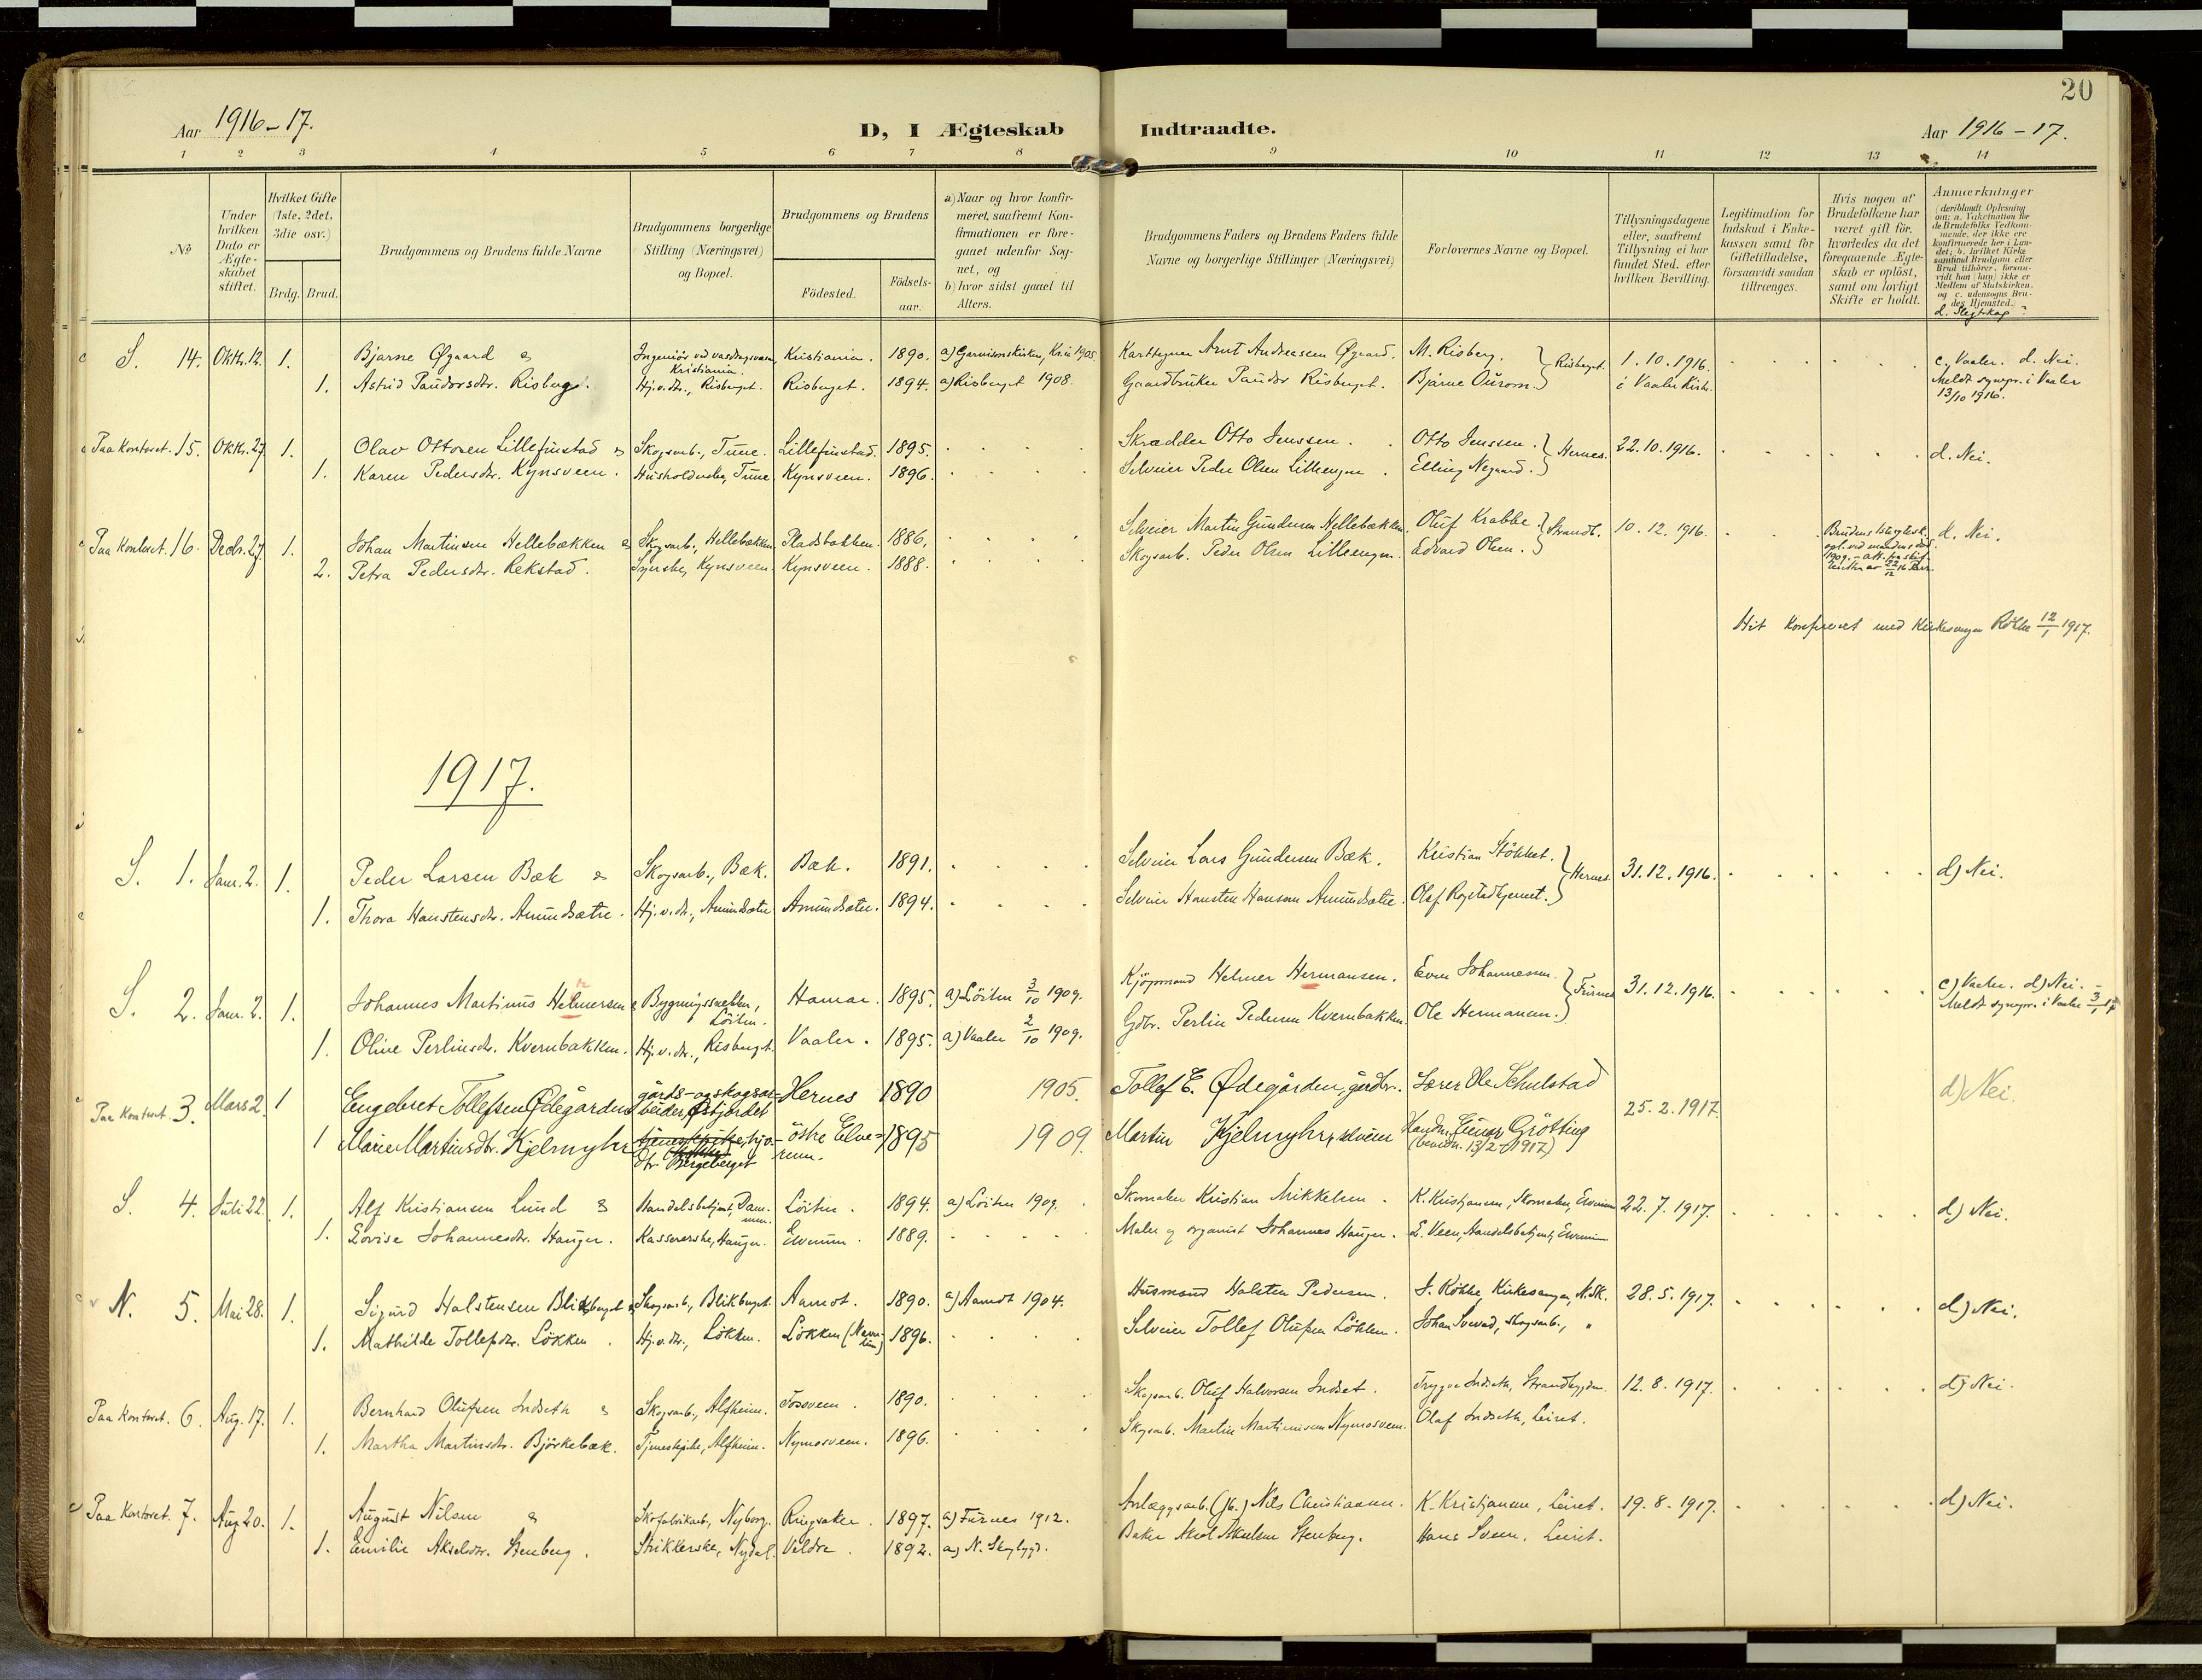 20
Aar 1916-17.
D, I Ægteskab Indtraadte.
Aar 1916-17.
1 2 3 4 5 6 7 8 9 10 11 12 13 14
No
Under hvilken Dato er Ægteskabet stiftet.
Hvilket Gifte (1ste, 2det, 3die osv.)
Brdg. Brud.
Brudgommens og Brudens fulde Navne
Brudgommens borgerlige Stilling (Næringsvei) og Bopæl.
Brudgommens og Brudens
Fødested.
Fødselsaar.
a) Naar og hvor konfirmeret, saafremt Konfirmationen er foregaaet udenfor Sognet, og
b) hvor sidst gaaet til Alters.
Brudgommens Faders og Brudens Faders fulde Navne og borgerlige Stillinger (Næringsvei)
Forlovernes Navne og Bopæl.
Tillysningsdagene eller, saafremt Tillysning ei har fundet Sted, efter hvilken Bevilling.
Legitimation for Indskud i Enkekassen samt for Giftetilladelse, forsaavidt saadan tiltrænges.
Hvis nogen af Brudefolkene har været gift før, hvorledes da det foregaaende Ægteskab er opløst, samt om lovligt Skifte er holdt.
Anmerkninger (deriblandt Oplysning om: a. Vakcination for de Brudefolks Vedkommende, der ikke ere konfirmerede her i Landet; b. hvilket Kirkesamfund Brudgom eller Brud tilhører, forsaavidt han (hun) ikke er Medlem af Statskirken, og c. udensogns Brudes Hjemsted.
d. Slegtskap?
S. 14. Oktr. 12. 1. Bjarne Øgaard & Ingeniør ved vasdragsvæsn, Kristiania. Kristiania. 1890. a) Garnisonskirken, Kr.ia 1905. Karttegner Arnt Andreassen Øgaard. M. Risberg. } Risberget. 1.10.1916. c. Vaaler. d. Nei.
1. Astrid Paudersdtr. Risberg. Hj.v.dtr., Risberget. Risberget. 1894. a) Risberget 1908. Gaardbruker Pauder Risberget. Bjarne Ourom. i Vaaler Kirke. Meldt sognepr. i Vaaler 13/10 1916.
Paa kontoret. 15. Oktr. 27 1. Olav Ottosen Lillefinstad & Skogsarb., Tune. Lillefinstad. 1895. Skrædder Otto Jenssen. Otto Jenssen. } Hernes. 22.10.1916. d. Nei.
1. Karen Pedersdtr. Kynsveen. Husholderske, Tune. Kynsveen. 1896. Selveier Peder Olsen Lilleengen. Elling Negaard.
Paa kontoret. 16. Decbr. 27. 1. Johan Martinsen Hellebækken & Skogsarb., Hellebækken. Pladsbakken. 1886. Selveier Martin Gundersen Hellebækken. Oluf Krabbe. } Strandb. 10.12.1916. d. Nei.
2. Petra Pedersdtr. Rekstad. Syerske, Kynsveen. Kynsveen. 1888. Skogsarb. Peder Olsen Lilleengen. Edvard Olsen.
Brudens 1ste egtesk. opl. ved mandens død 1909. - att. fra skifteretten av 22/12 16
Hit konfereret med Kirkesanger Rökke 12/1 1917.
1917.
S. 1. Janr. 2. 1. Peder Larsen Bæk & Skogsarb., Bæk. Bæk. 1891. Selveier Lars Gundersen Bæk. Kristian Stökket. } Hernes. 31.12.1916. d) Nei.
1. Thora Hanstensdtr. Amundsætre. Hj.v.dtr., Amundsætre Amundsæter. 1894. Selveier Hansten Hansen Amundsætre. Olaf Rogstadtjernet.
S. 2. Janr. 2. 1. Johannes Martinus Helmersen & Bygningssnekker, Löiten. Hamar. 1895. a) Löiten 3/10 1909. Kjöpmand Helmer Hermansen. Even Johannessen. } Furnes 31.12.1916. c) Vaaler. d) Nei.
1. Oline Perlinsdtr. Kvernbakken. Hj.v.dtr., Risberget. Vaaler. 1895. a) Vaaler 2/10 1909. Gdbr. Perlin Pedersen Kvernbakken. Ole Hermansen. Meldt sognepr. i Vaaler 3/1 17
Paa kontoret. 3. Mars 2. 1 Engebret Tollefsen Ødegården gårds- og skogsarbeider, Østjordet Hernes 1890 1905. Tollef E. Ødegården, gårdbr. Lærer Ole Schulstad 25.2.1917. d) Nei.
1 Marie Martinsdtr. Kjelmyhr tjenestepike, hjv. dtr. Bergeberget östre Elverum. 1895 1909. Martin Kjelmyhr, selveier Handm. Einar Grötting (bevidn. 13/2-1917)
S. 4. Juli 22. 1. Alf Kristiansen Lund & Handelsbetjent, Löiten. 1894. a) Löiten 1909. Skomaker Kristian Mikkelsen. K. Kristiansen, Skomaker, Elverum 22.7.1917. d) Nei.
1. Lovise Johannesdtr. Hauger. Kassererske, Hauger. Elverum. 1889. Maler og organist Johannes Hauger. E. Veen, Handelsbetjent, Elverum
N. 5. Mai 28. 1. Sigurd Halstensen Blikberget & Skogsarb., Blikberget. Aamot. 1890. a) Aamot 1904. Husmand Halsten Pedersen. J. Rökke, Kirkesanger, N.Sk. 28.5.1917. d) Nei.
1. Mathilde Tollefsdtr. Lökken. Hj.v.dtr., Lökken. Lökken 1896. Selveier Tollef Olufsen Lökken. Johan Svevad, Skogsarb., "
Paa kontoret. 6. Aug. 17. 1. Bernhard Olufsen Indseth & Skogsarb., Alfheim. Toseveen. 1890. Skogsarb. Oluf Halvorsen Indset. Trygve Indseth, Strandbygden. 12.8.1917. d) Nei.
1. Martha Martinsdtr. Björkebæk. Tjenestepike, Alfheim. Nymosveen. 1896. Skogsarb. Martin Martinussen Nymosveen. Olaf Indseth, Leiret.
Paa Kontoret. 7. Aug. 20. 1. August Nilsen & Skofabrikarb., Nyborg. Ringsaker. 1897. a) Furnes 1912. Anlægsarb. (Jb.) Nils Christiansen. K. Kristjansen, Leiret. 19.8.1917. d) Nei.
1. Emilie Akselsdtr. Stenberg. Strikkerske, Nydal. Veldre. 1892. a) N. Skogbygd. Baker Aksel Akselsen Stenberg. Hans Sveen, Leiret.